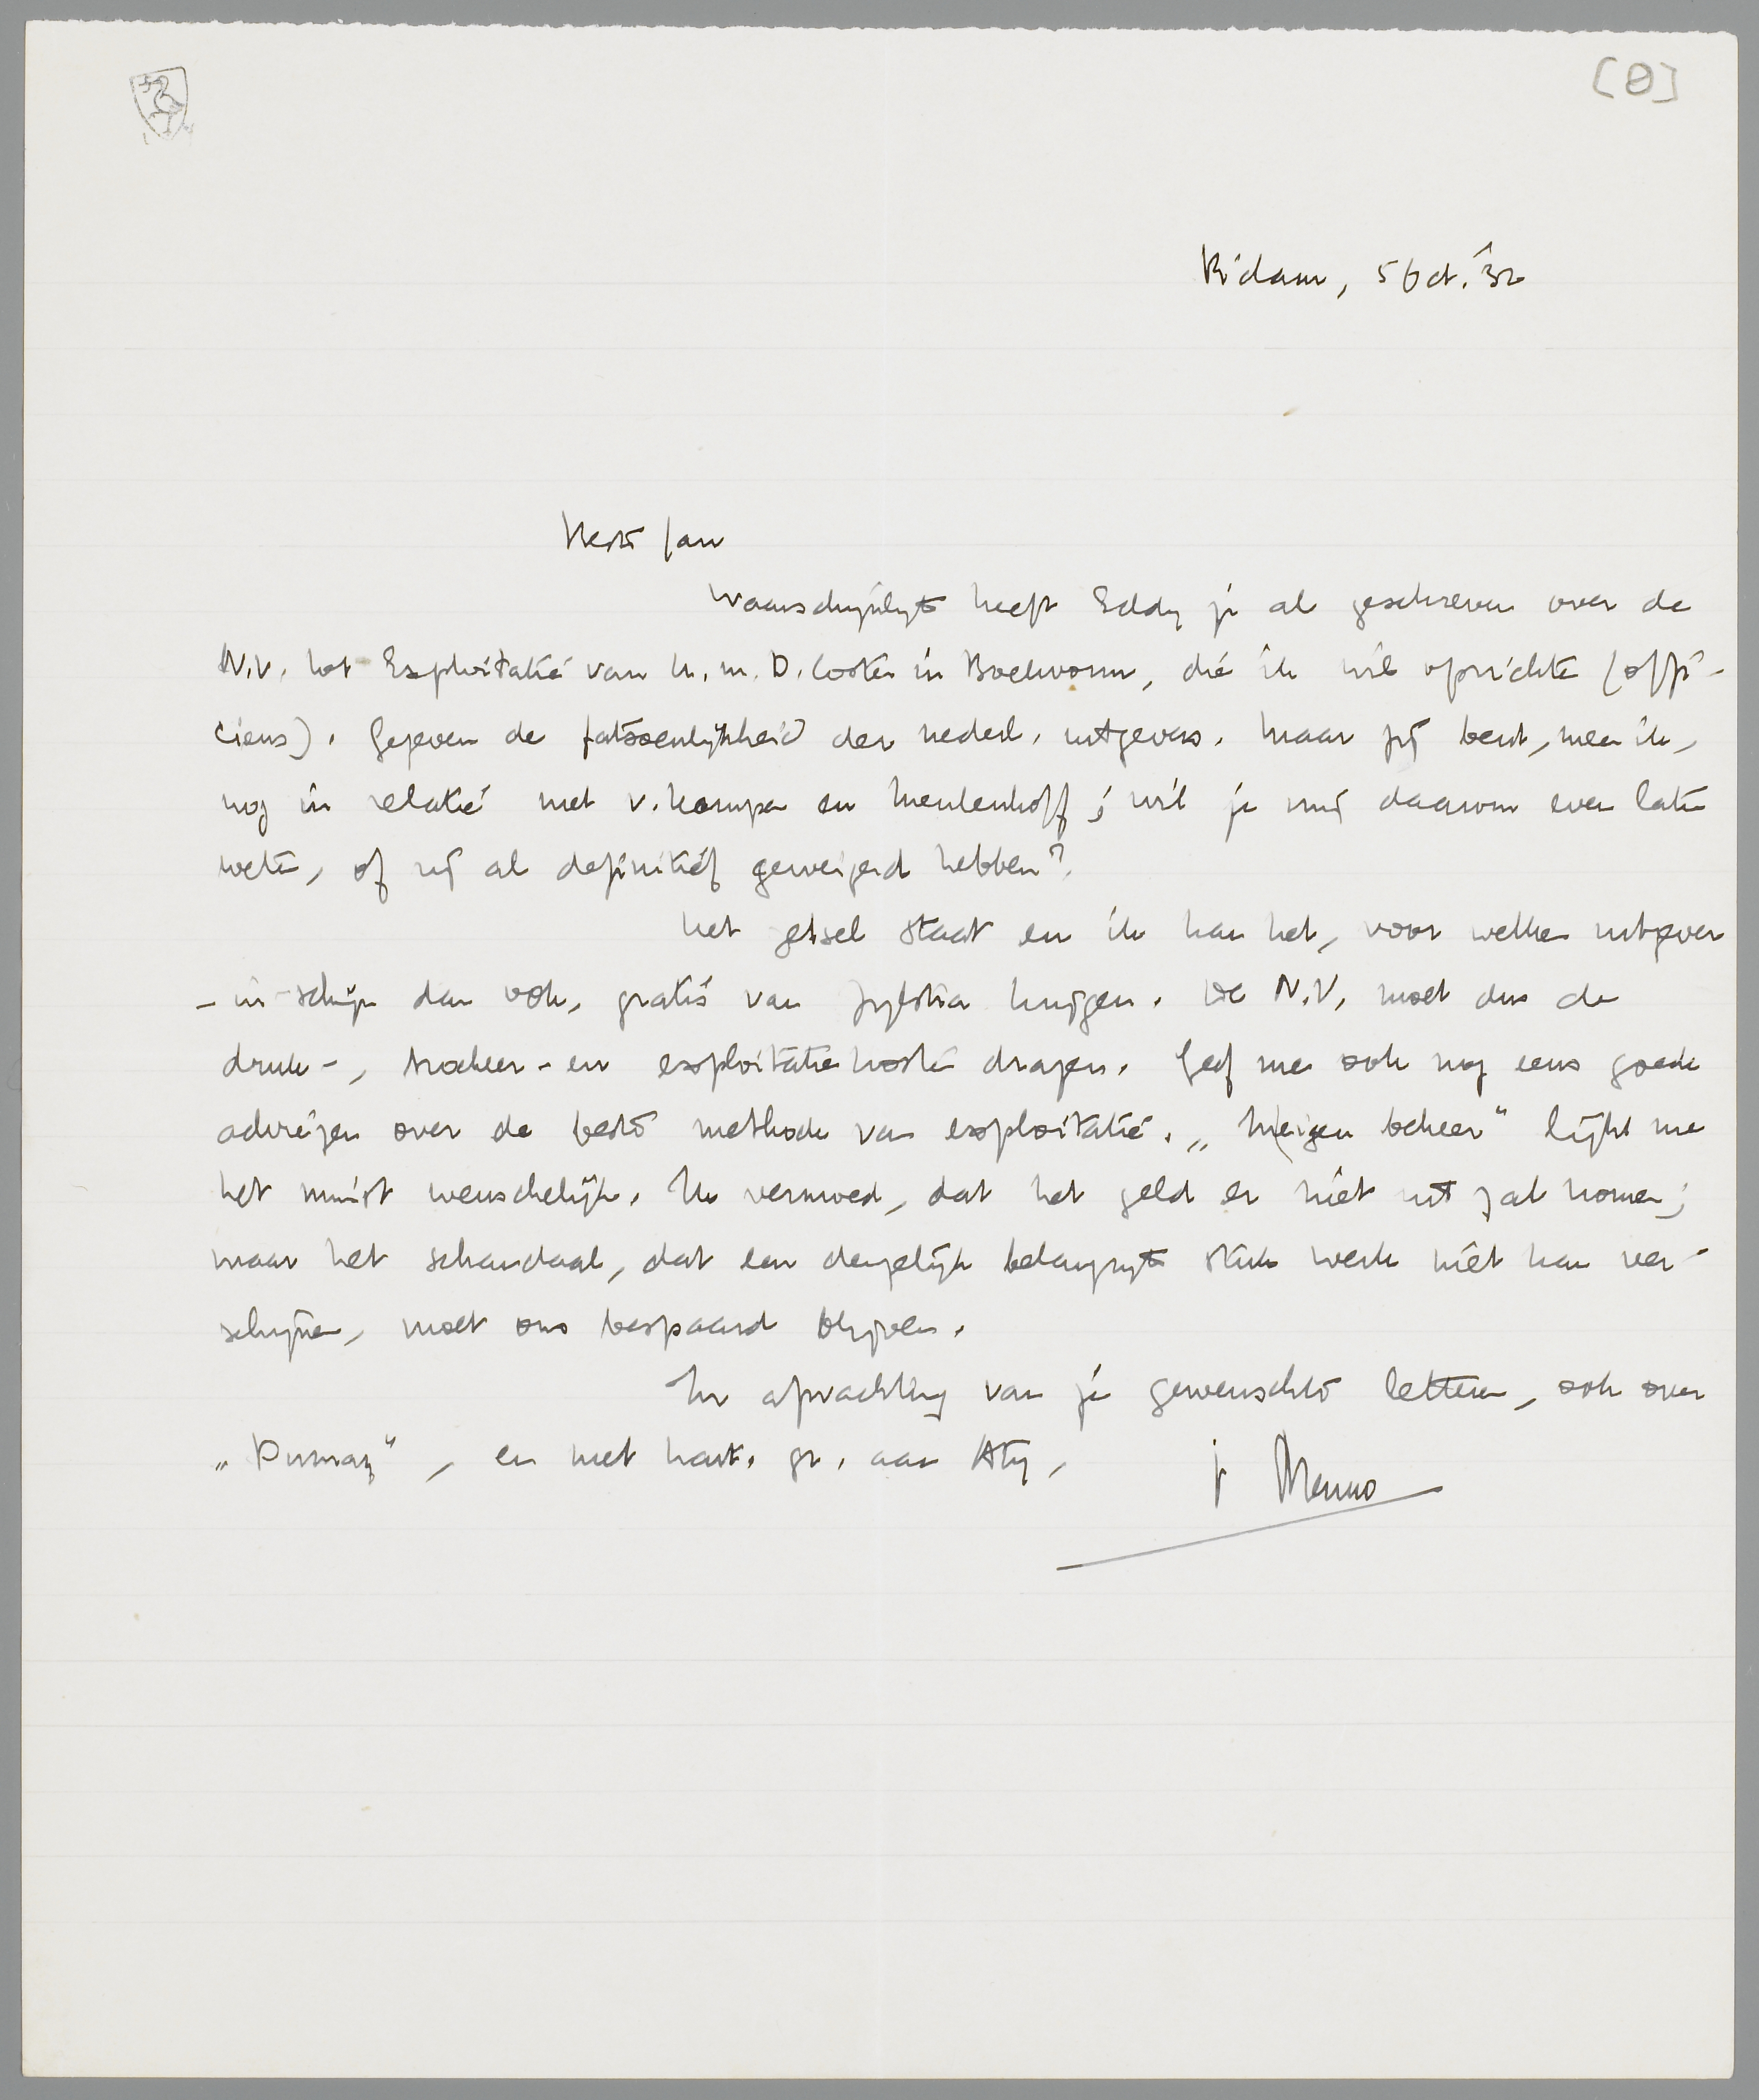 [0]
R'dam, 5 Oct. '32
Beste Jan
Waarschijnlijk heeft Eddy je al geschreven over de
N.V. tot Exploitatie van U. m. D. Coster in Boekvorm, die ik wil oprichten (offi-
cieus). Gegeven de fatsoenlijkheid der nederl. uitgevers. Maar jij bent, meen ik,
nog in relatie met v. Kampen en Meulenhoff; wil je mij daarom even laten
weten, of zij al definitief geweigerd hebben?
Het zetsel staat en ik kan het, voor welken uitgever
- in schijn dan ook, gratis van Zijlstra krijgen. De N.V. moet dus de
druk-, brocheer- en exploitatiekosten dragen. Geef me ook nog eens goede
adviezen over de beste methode van exploitatie. „In eigen beheer" lijkt me
het minst wenschelijk. Ik vermoed, dat het geld er niet uit zal komen;
maar het schandaal, dat een dergelijk belangrijk stuk werk niet kan ver-
schijnen, moet ons bespaard blijven.
In afwachting van je gewenschte letteren, ook over
„Dumay", en met hart. gr. aan Aty,
je Menno